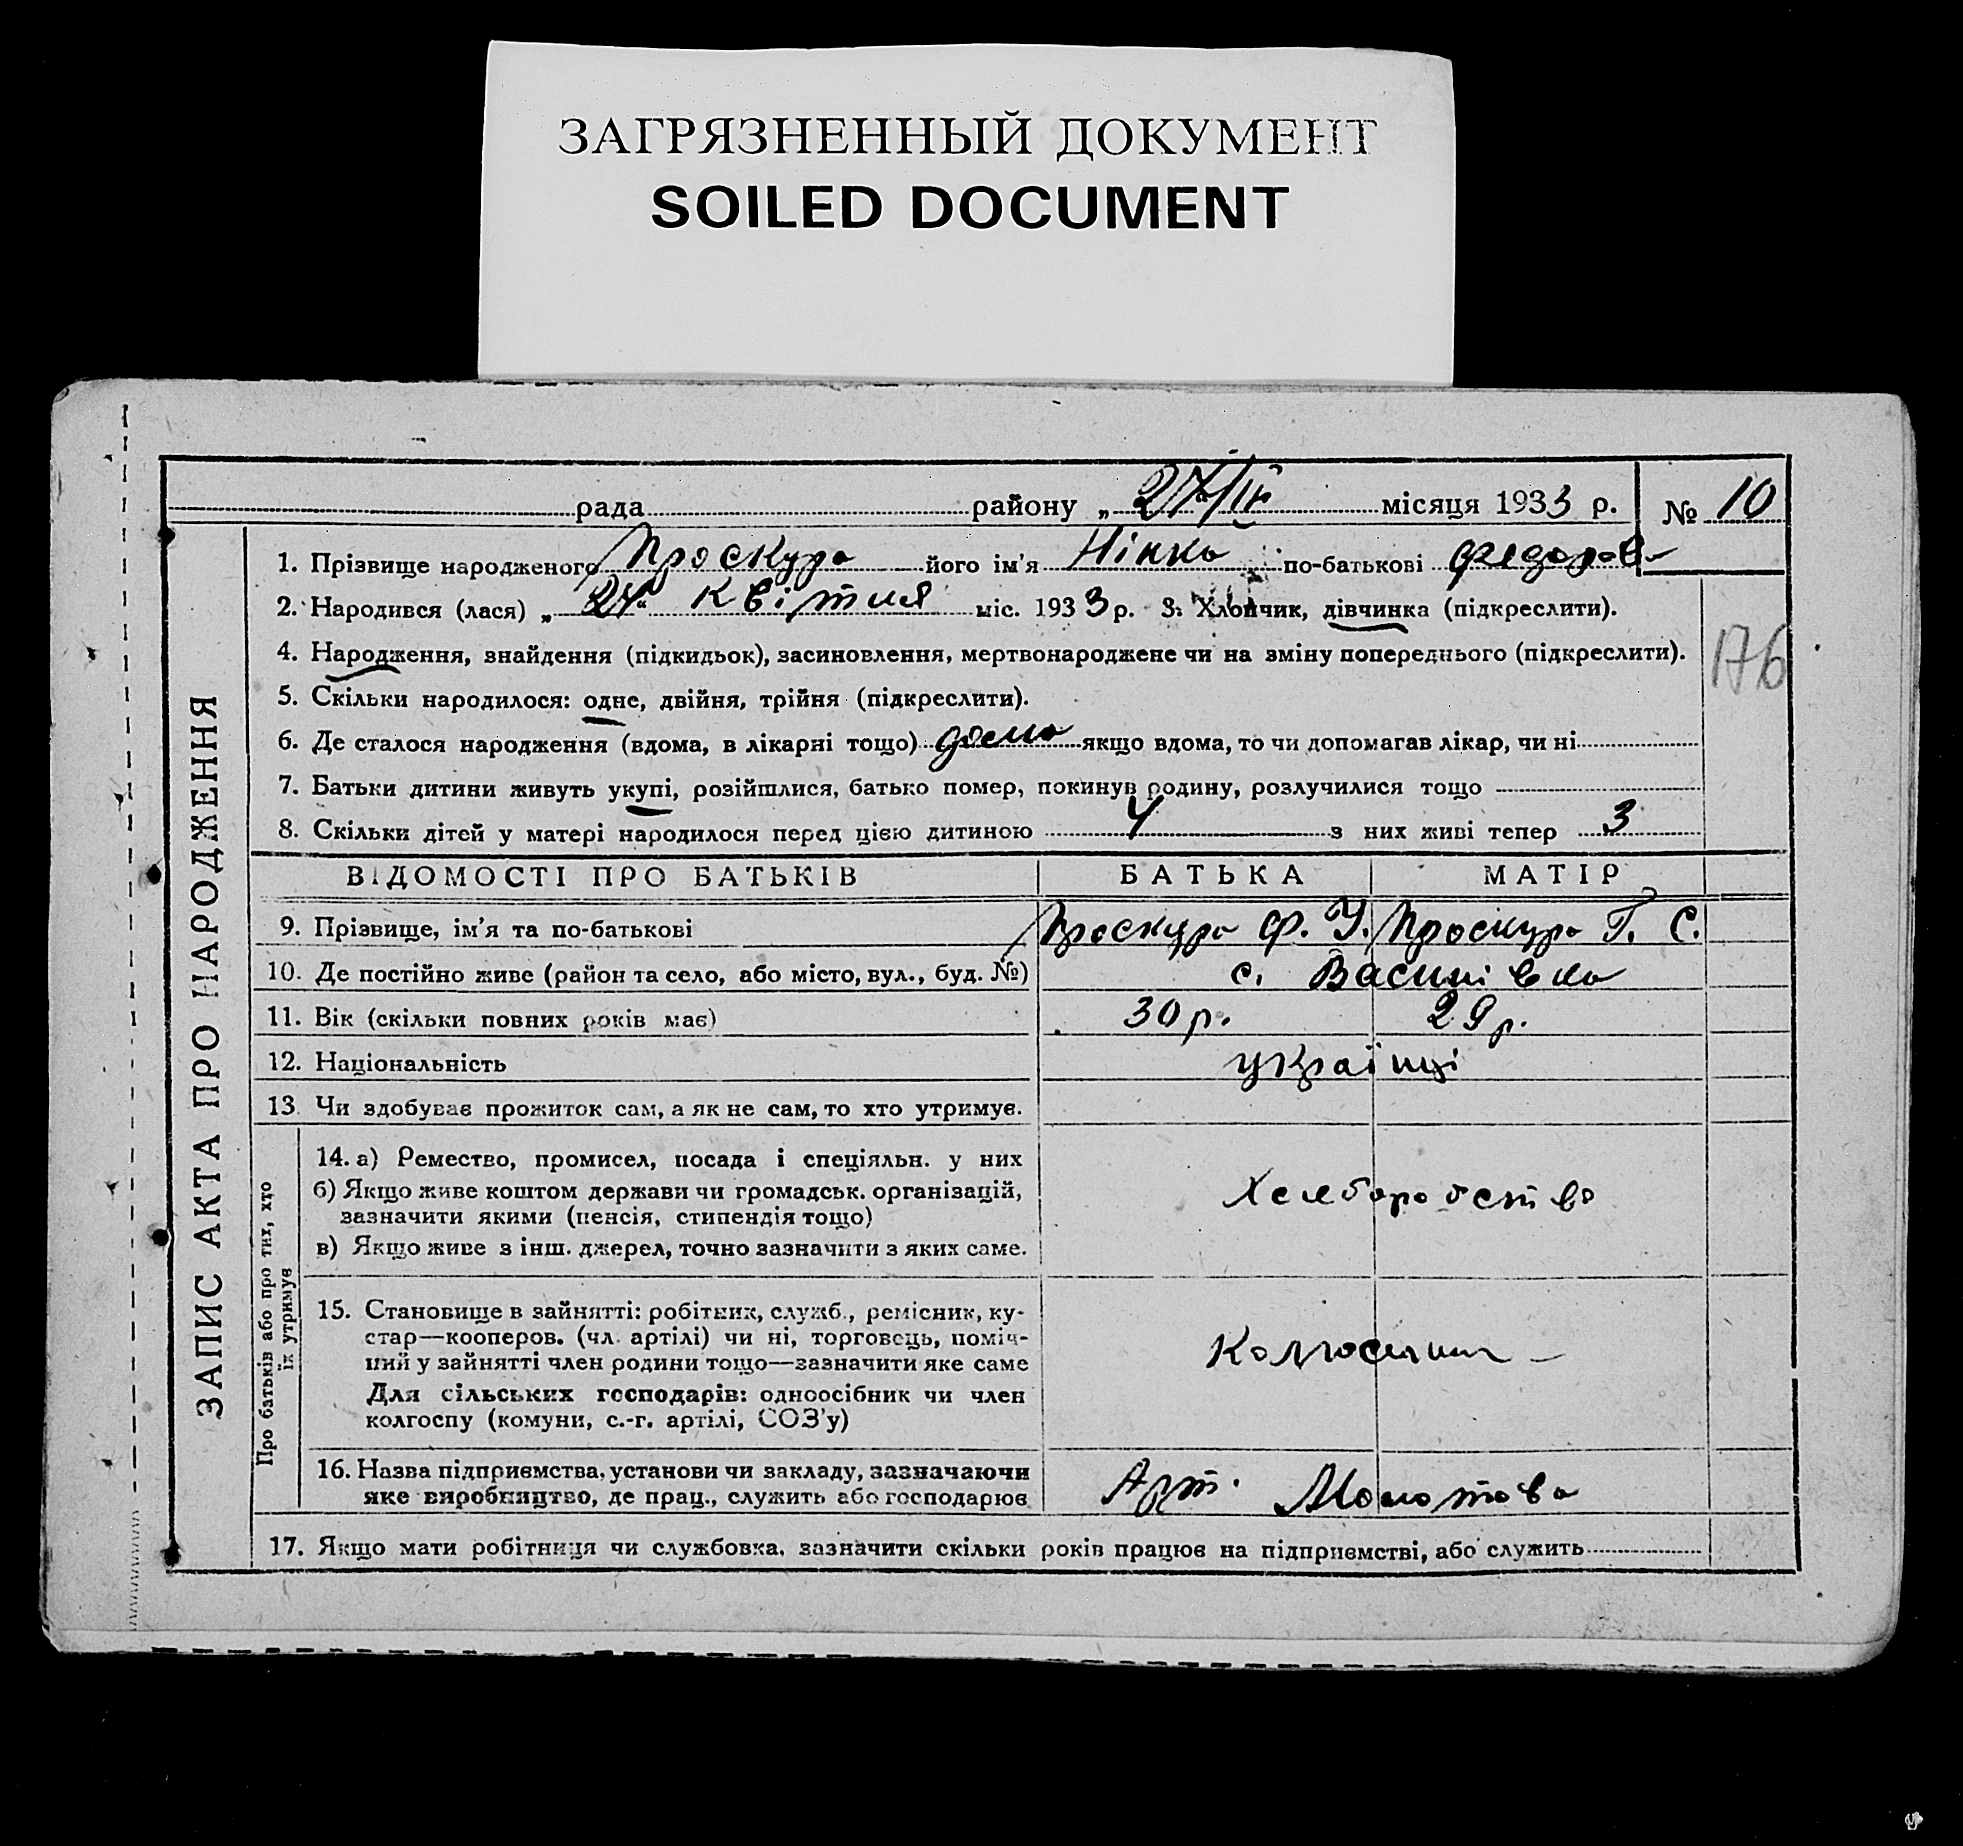 ЗАГРЯЗНЕННЫЙ ДОКУМЕНТ
SOILED DOCUMENT
рада района „27/IV місяця 1933 р. № 10
ЗАПИС АКТА ПРО НАРОДЖЕННЯ
1. Прізвище народженого Проскура його ім'я Нінка по-батькові Федоров-
2. Народився (лася) „24“ квітня міс. 1933 р. 3. Хлопчик, дівчинка (підкреслити).
176
4. Народження, знайдення (підкидьок), засиновлення, мертвонароджене чи на зміну попереднього (підкреслити).
5. Скільки народилося: одне, двійня, трійня (підкреслити).
6. Де сталося народження (вдома, в лікарні тощо) дома якщо вдома, то чи допомагав лікар, чи ні
7. Батьки дитини живуть укупі, розійшлися, батько помер, покинув родину, розлучилися тощо
8. Скільки дітей у матері народилося перед цією дитиною 4 з них живі тепер 3
ВІДОМОСТІ ПРО БАТЬКІВ БАТЬКА МАТІР
9. Прізвище, ім'я та по-батькові Проскура Ф. У. Проскура Г. С.
10. Де постійно живе (район та село, або місто, вул., буд. №) с. Василівка
11. Вік (скільки повних років має) 30 р. 29 р.
12. Національність українці
13. Чи здобуває прожиток сам, а як не сам, то хто утримує.
Про батьків або про тих, хто
їх утримує
14. а) Ремество, промисел, посада і спеціяльн. у них
б) Якщо живе коштом держави чи громадськ. організацій,
зазначити якими (пенсія, стипендія тощо)
Хлеборобство
в) Якщо живе з інш. джерел, точно зазначити з яких саме.
15. Становище в зайнятті: робітник, служб., ремісник, ку-
стар—кооперов. (чл. артілі) чи ні, торговець, поміч-
ний у зайнятті член родини тощо—зазначити яке саме
Для сільських господарів: одноосібник чи член
колгоспу (комуни, с.-г. артілі, СОЗ'у)
16. Назва підприємства, установи чи закладу, зазначаючи
яке виробництво, де прац., служить або господарює Арт. Молотова
17. Якщо мати робітниця чи службовка, зазначити скільки років працює на підприємстві, або служить